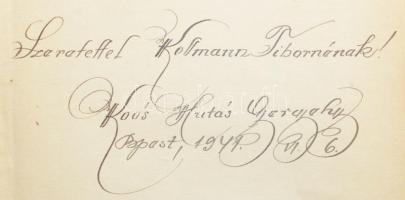 Szeretettel Kollmann Tibornénak!
Koós Hutás Gergely
Bpest, 1941. VI. 6.